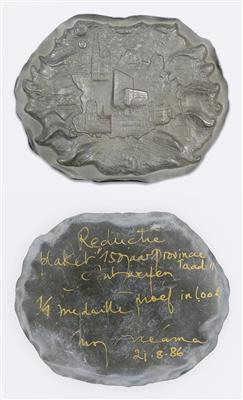 Reductie
plaket "150 jaar provincie
Antwerpen raad"
1/1 medaille proef in lood
21-8-86